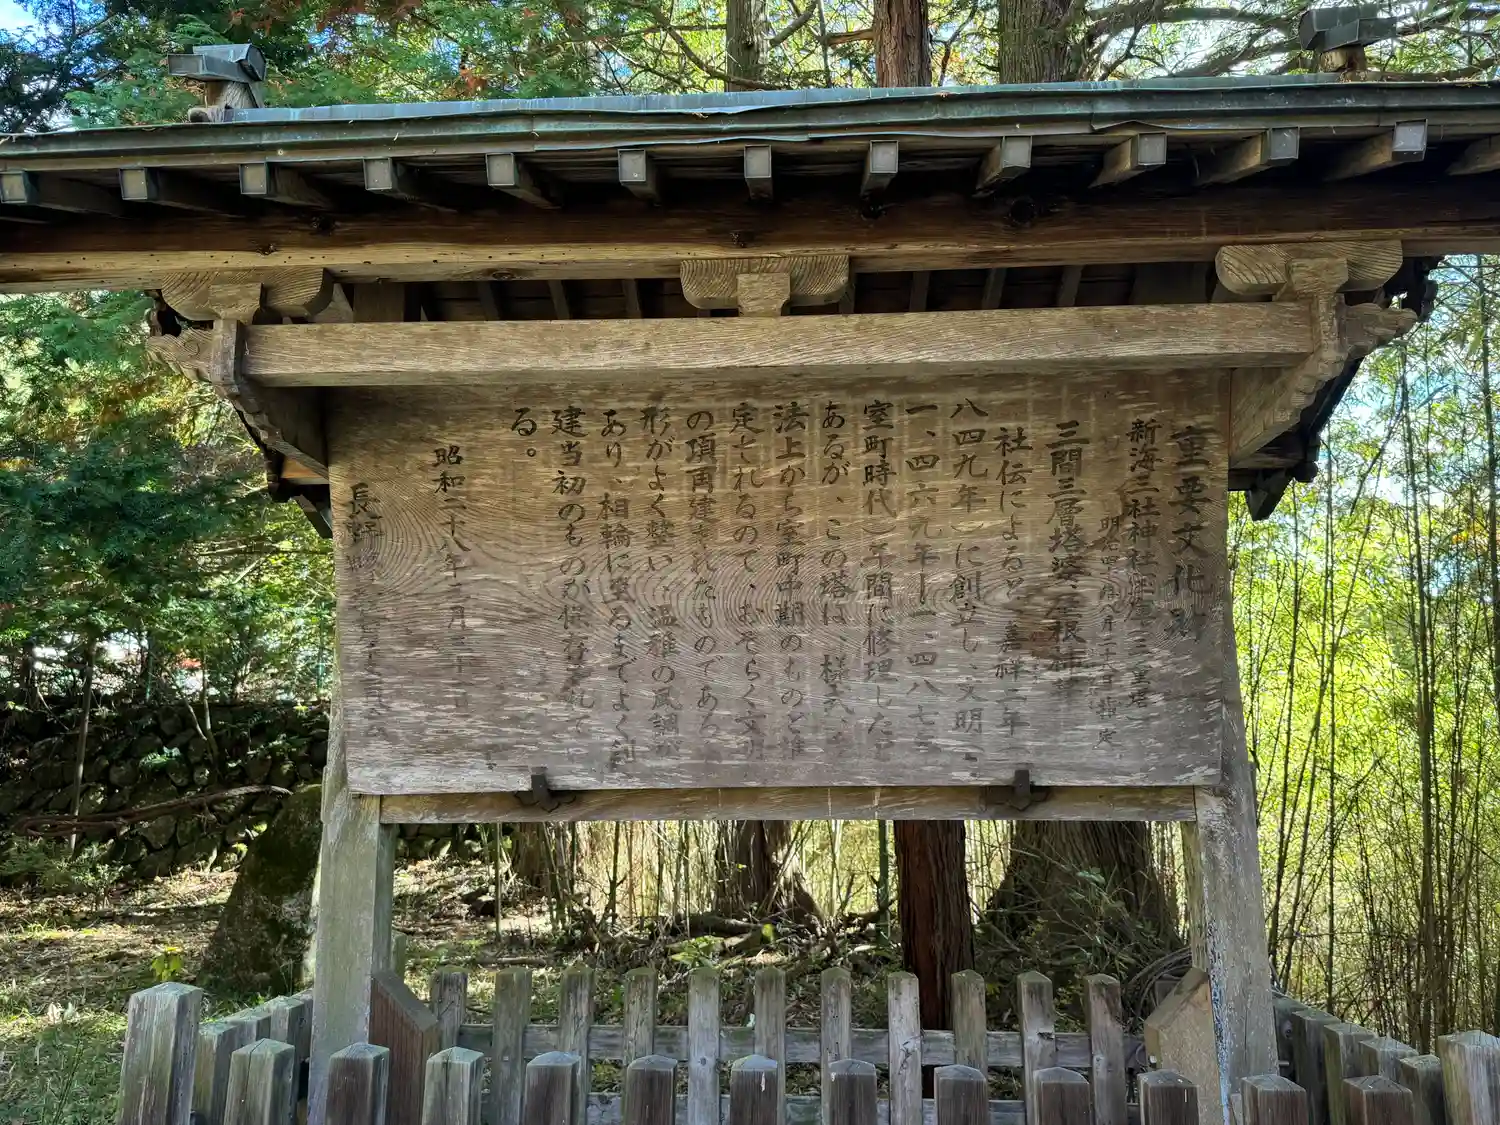 重要文化財
新海三社神社
明治四 月八月二十八日指定
三間三層塔婆、屋根柿
社伝によると、嘉祥二年
八四九年)に創立し、文明
一、四六九年ー一、四八七
室町時代)年間に修理した
あるが、この塔は、様式、
法上から室町中期のものと推
定されるので、おそらく文明
の頃再建されたものであろ
形がよく整い、温雅の風調が
あり、相輪に至るまでよく創
建当初のものが保存されて
る。
昭和二十八年 月 日
長野県 委員会